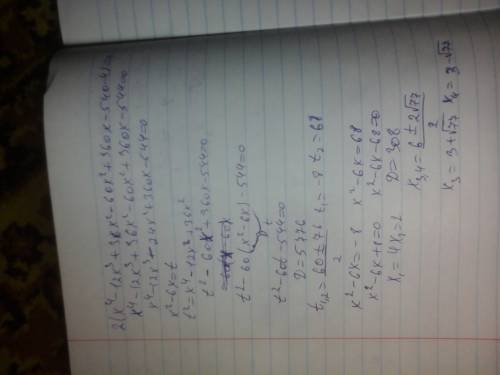 2(x⁴-12x³+36x²-60x²+360x-544)=0
x⁴-12x³+36x²-60x²+360x-544=0
x⁴-12x³-24x²+360x-544=0
x²-6x=t
t²=x⁴-12x³+36x²
t²-60x²+360x-544=0
t²-60(x²-6x)-544=0
t
t²-60t-544=0
D=5776
t₁,₂=60±76 t₁=-8 t₂=68
2
x²-6x=-8 x²-6x=68
x²-6x+8=0 x²-6x-68=0
x₁=4 x₂=2 D=308
x₃,₄=6±2√77
2
x₃=3+√77 x₄=3-√77